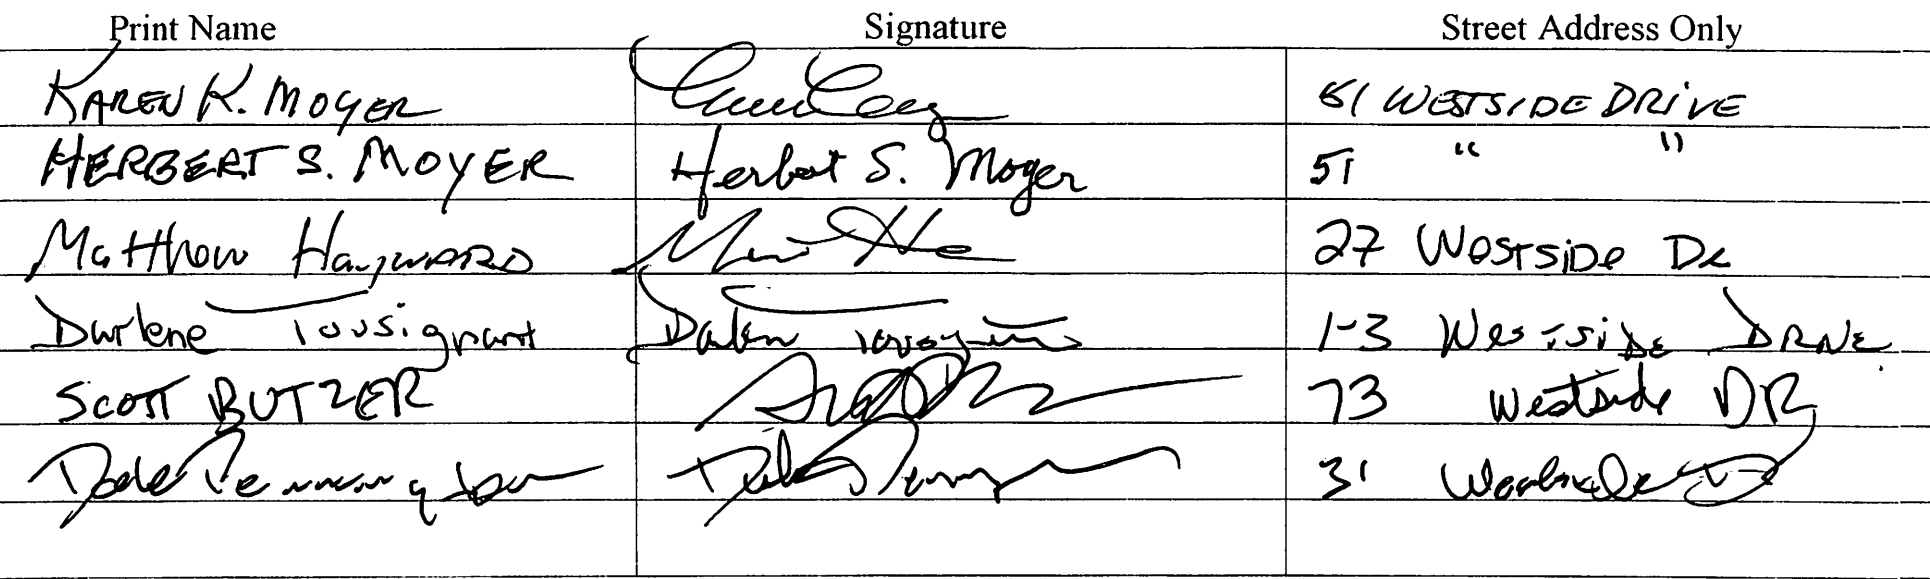 Print Name Signature Street Address Only
KAREN K. MOYER 51 WESTSIDE DRIVE
HERBERT S. MOYER Herbert S. Moyer 51 " "
Matthew Hayward 27 Westside Dr
Darlene Tousignant Darlene Tousignant 1-3 Westside DRIVE
SCOTT BUTZER 73 Westside DR
Dale Pennington 31 Westside Dr